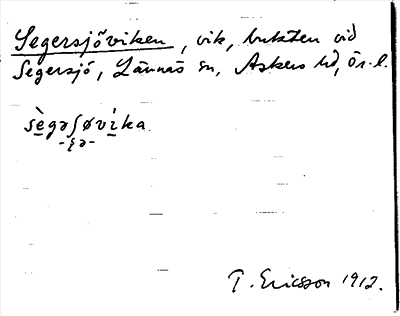 Segersjöviken, vik, bukten vid
Segersjö, Lännäs sn, Askers hd, Ör. l.
sègəʃøvìka
-ξə-
T. Ericsson 1912.